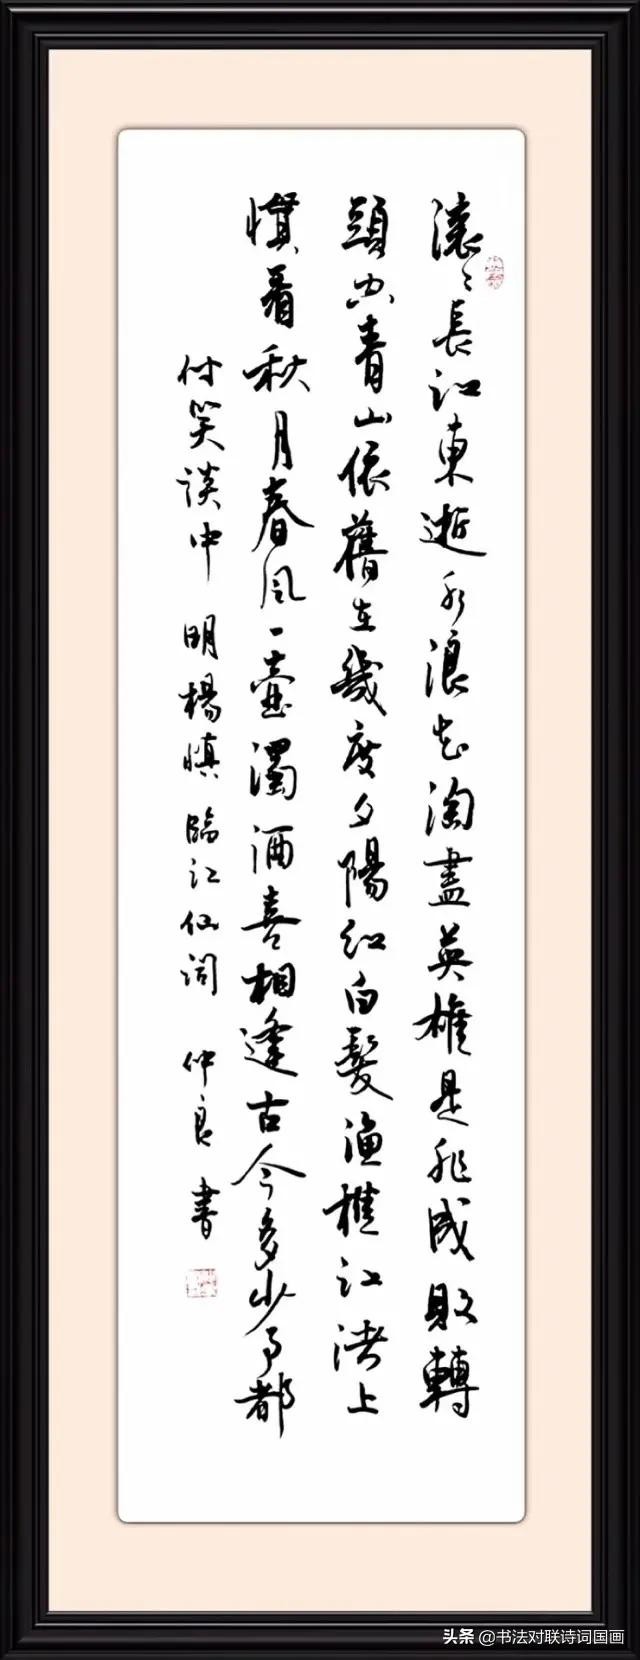 滚〻長江東逝水浪花淘盡英雄是非成敗轉
頭空青山依舊在幾度夕陽紅白髮漁樵江渚上
慣看秋月春风一壶濁酒喜相逢古今多少事都
付笑談中 明楊慎臨江仙词 仲良書
头条 @书法对联诗词国画